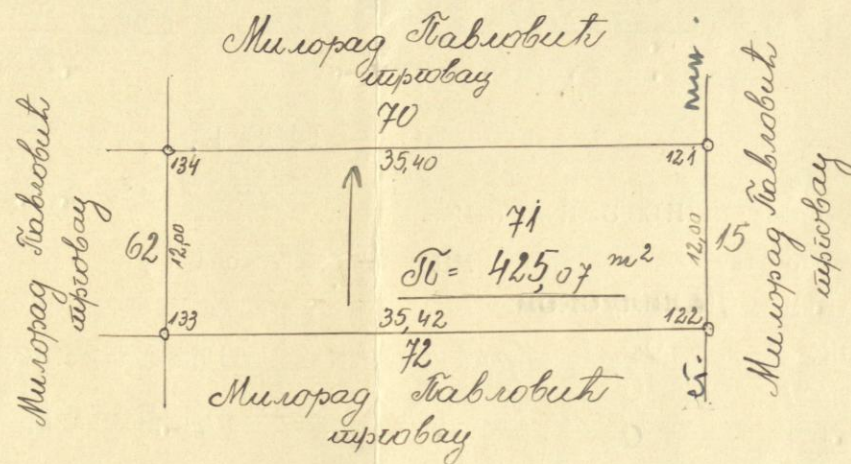 Милорад Павловић
трговац
70
Милорад Павловић
трговац
62
134
35,40
121
12,00
71
П = 425,07 m²
12,00
15
Милорад Павловић
трговац
133
35,42
122
72
Милорад Павловић
трговац